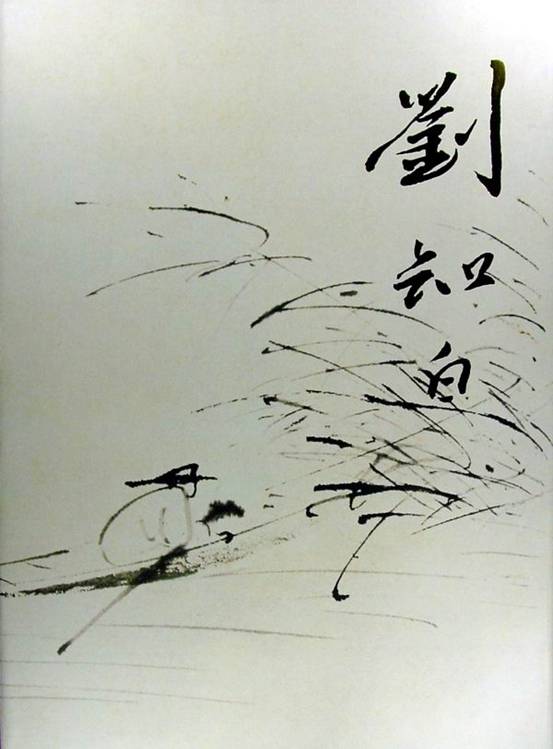 劉知白